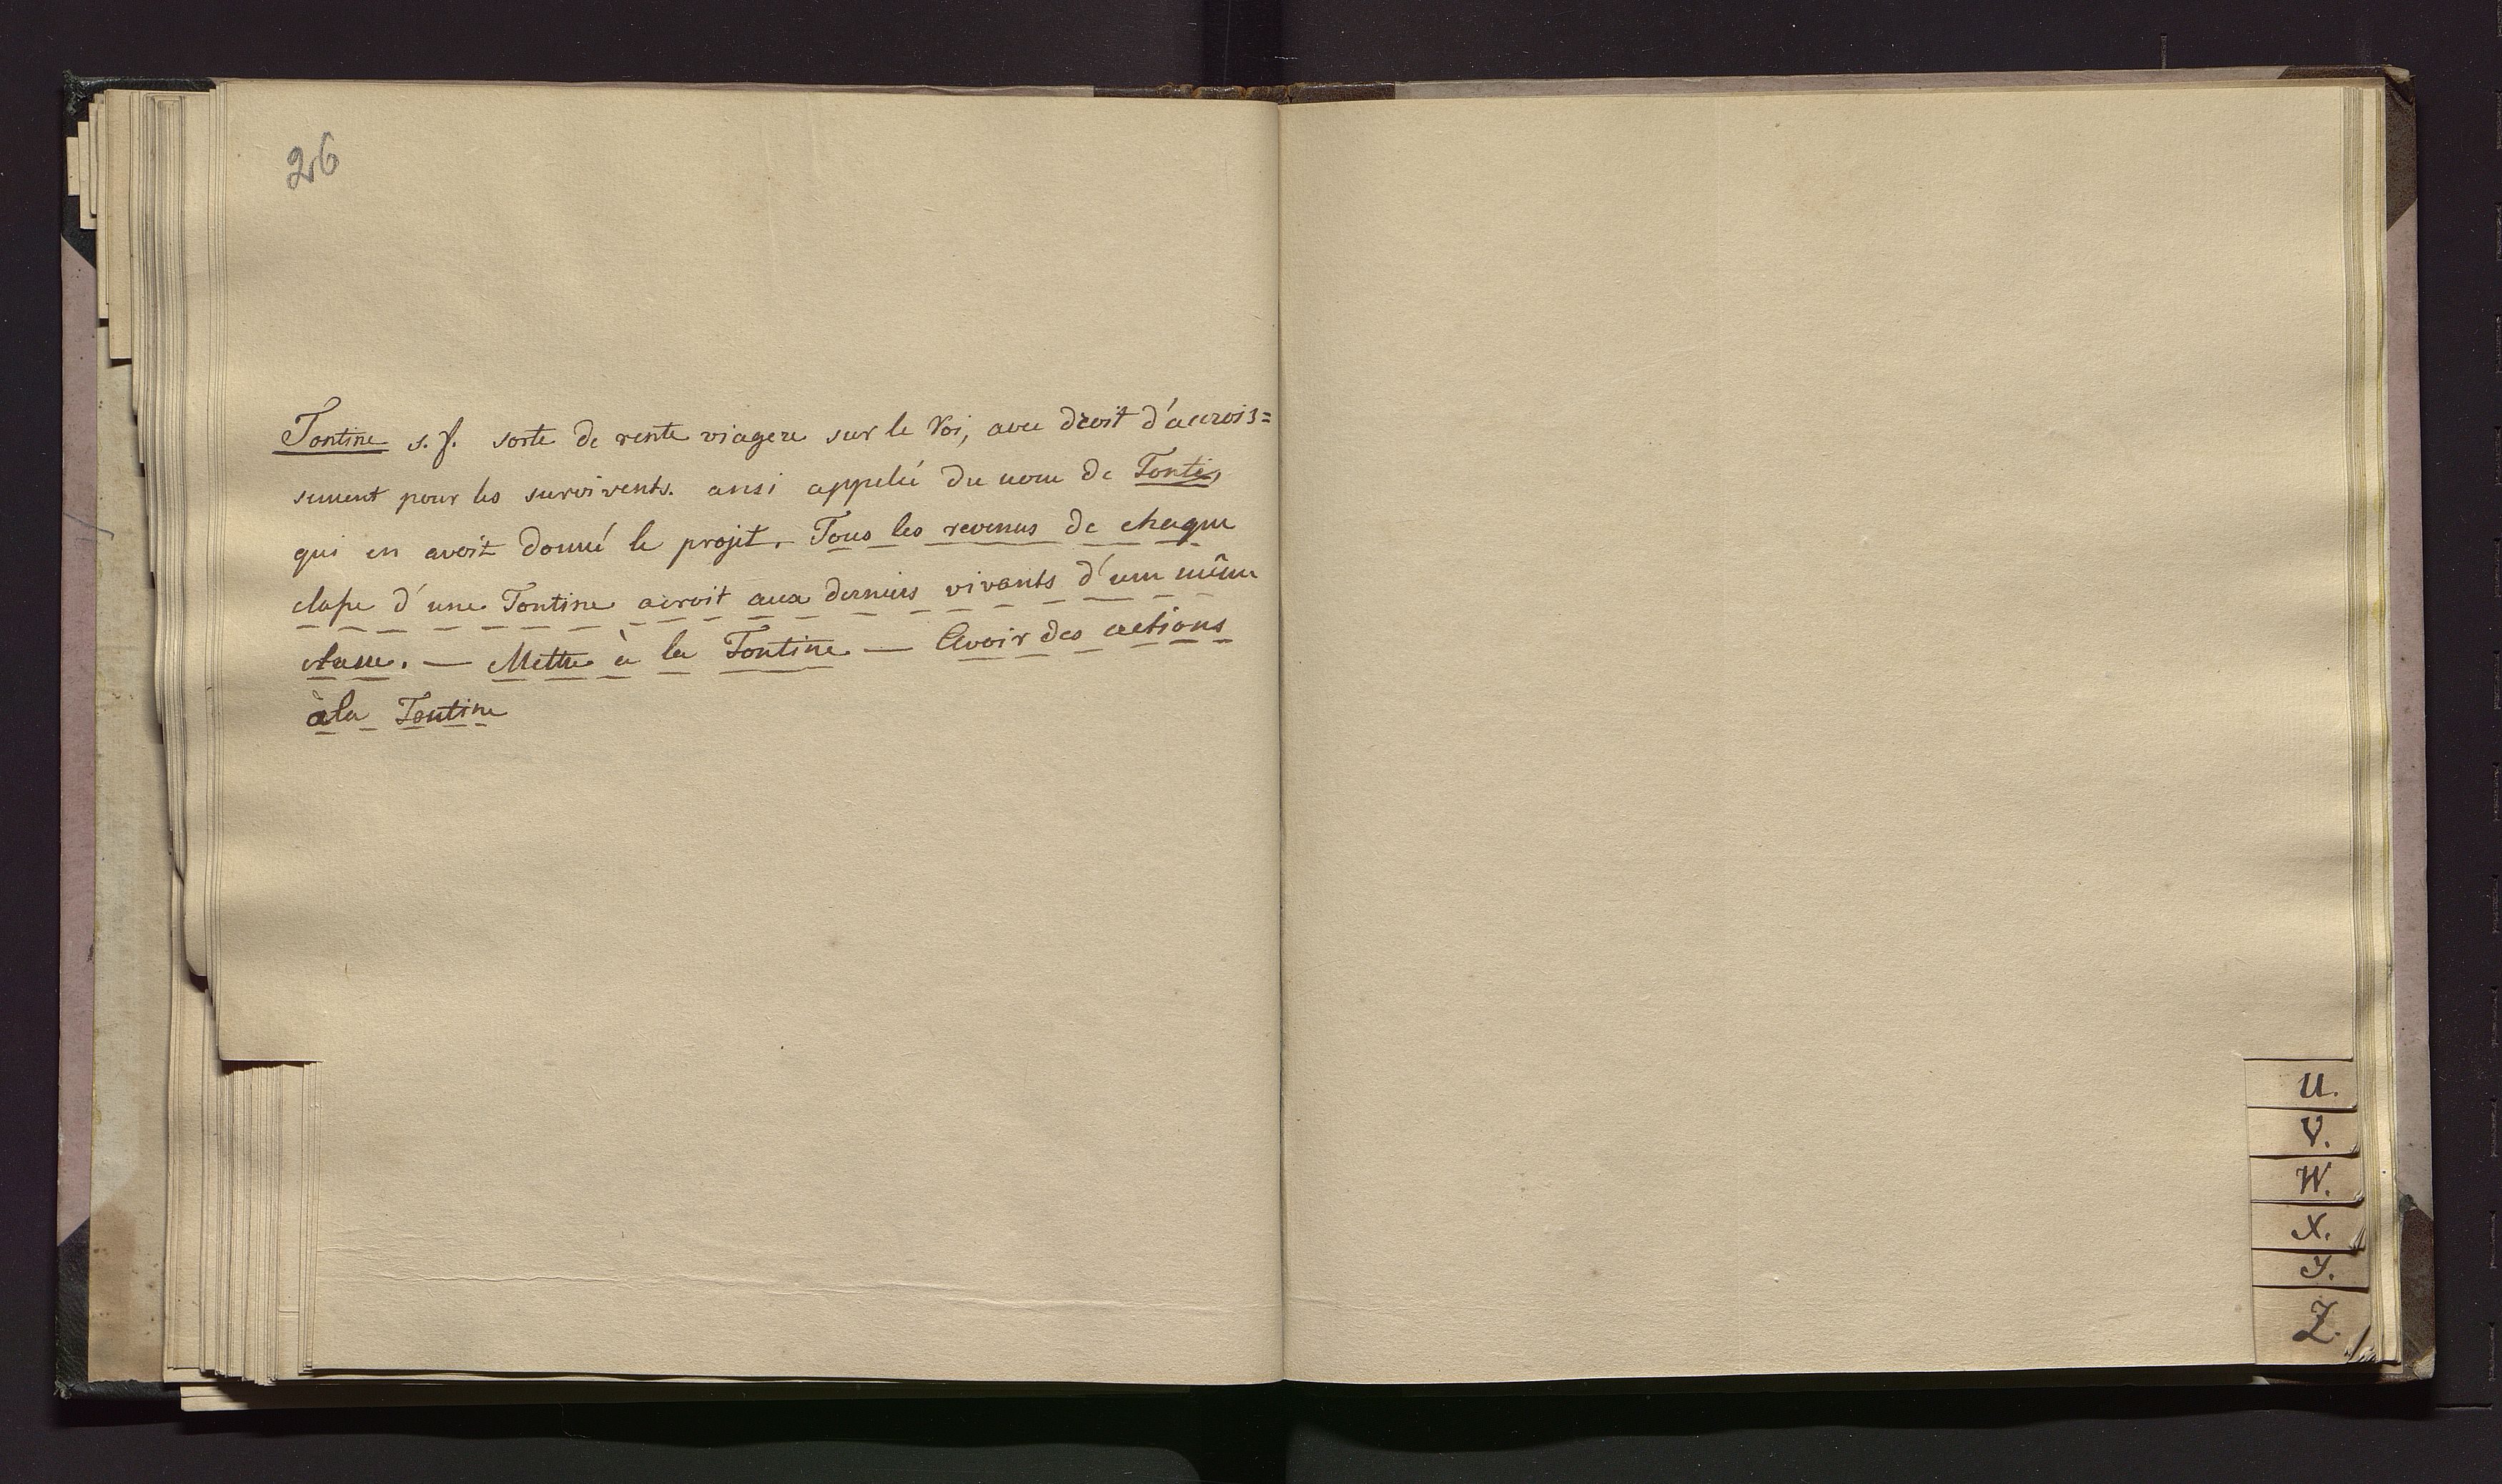 26
Tontine s. f. sorte de rente viagere sur le Roi, avec droit d'accrois=
sement pour les survivents. ansi appelée du nom de Tonti,
qui en avoit donné le projet. Tous les revenus de chaque
classe d'une Tontine acroit aux derniers vivants d'une même
classe. — Mettre à la Tontine — Avoir des actions
à la Tontine
U.
V.
W.
X.
Y.
Z.